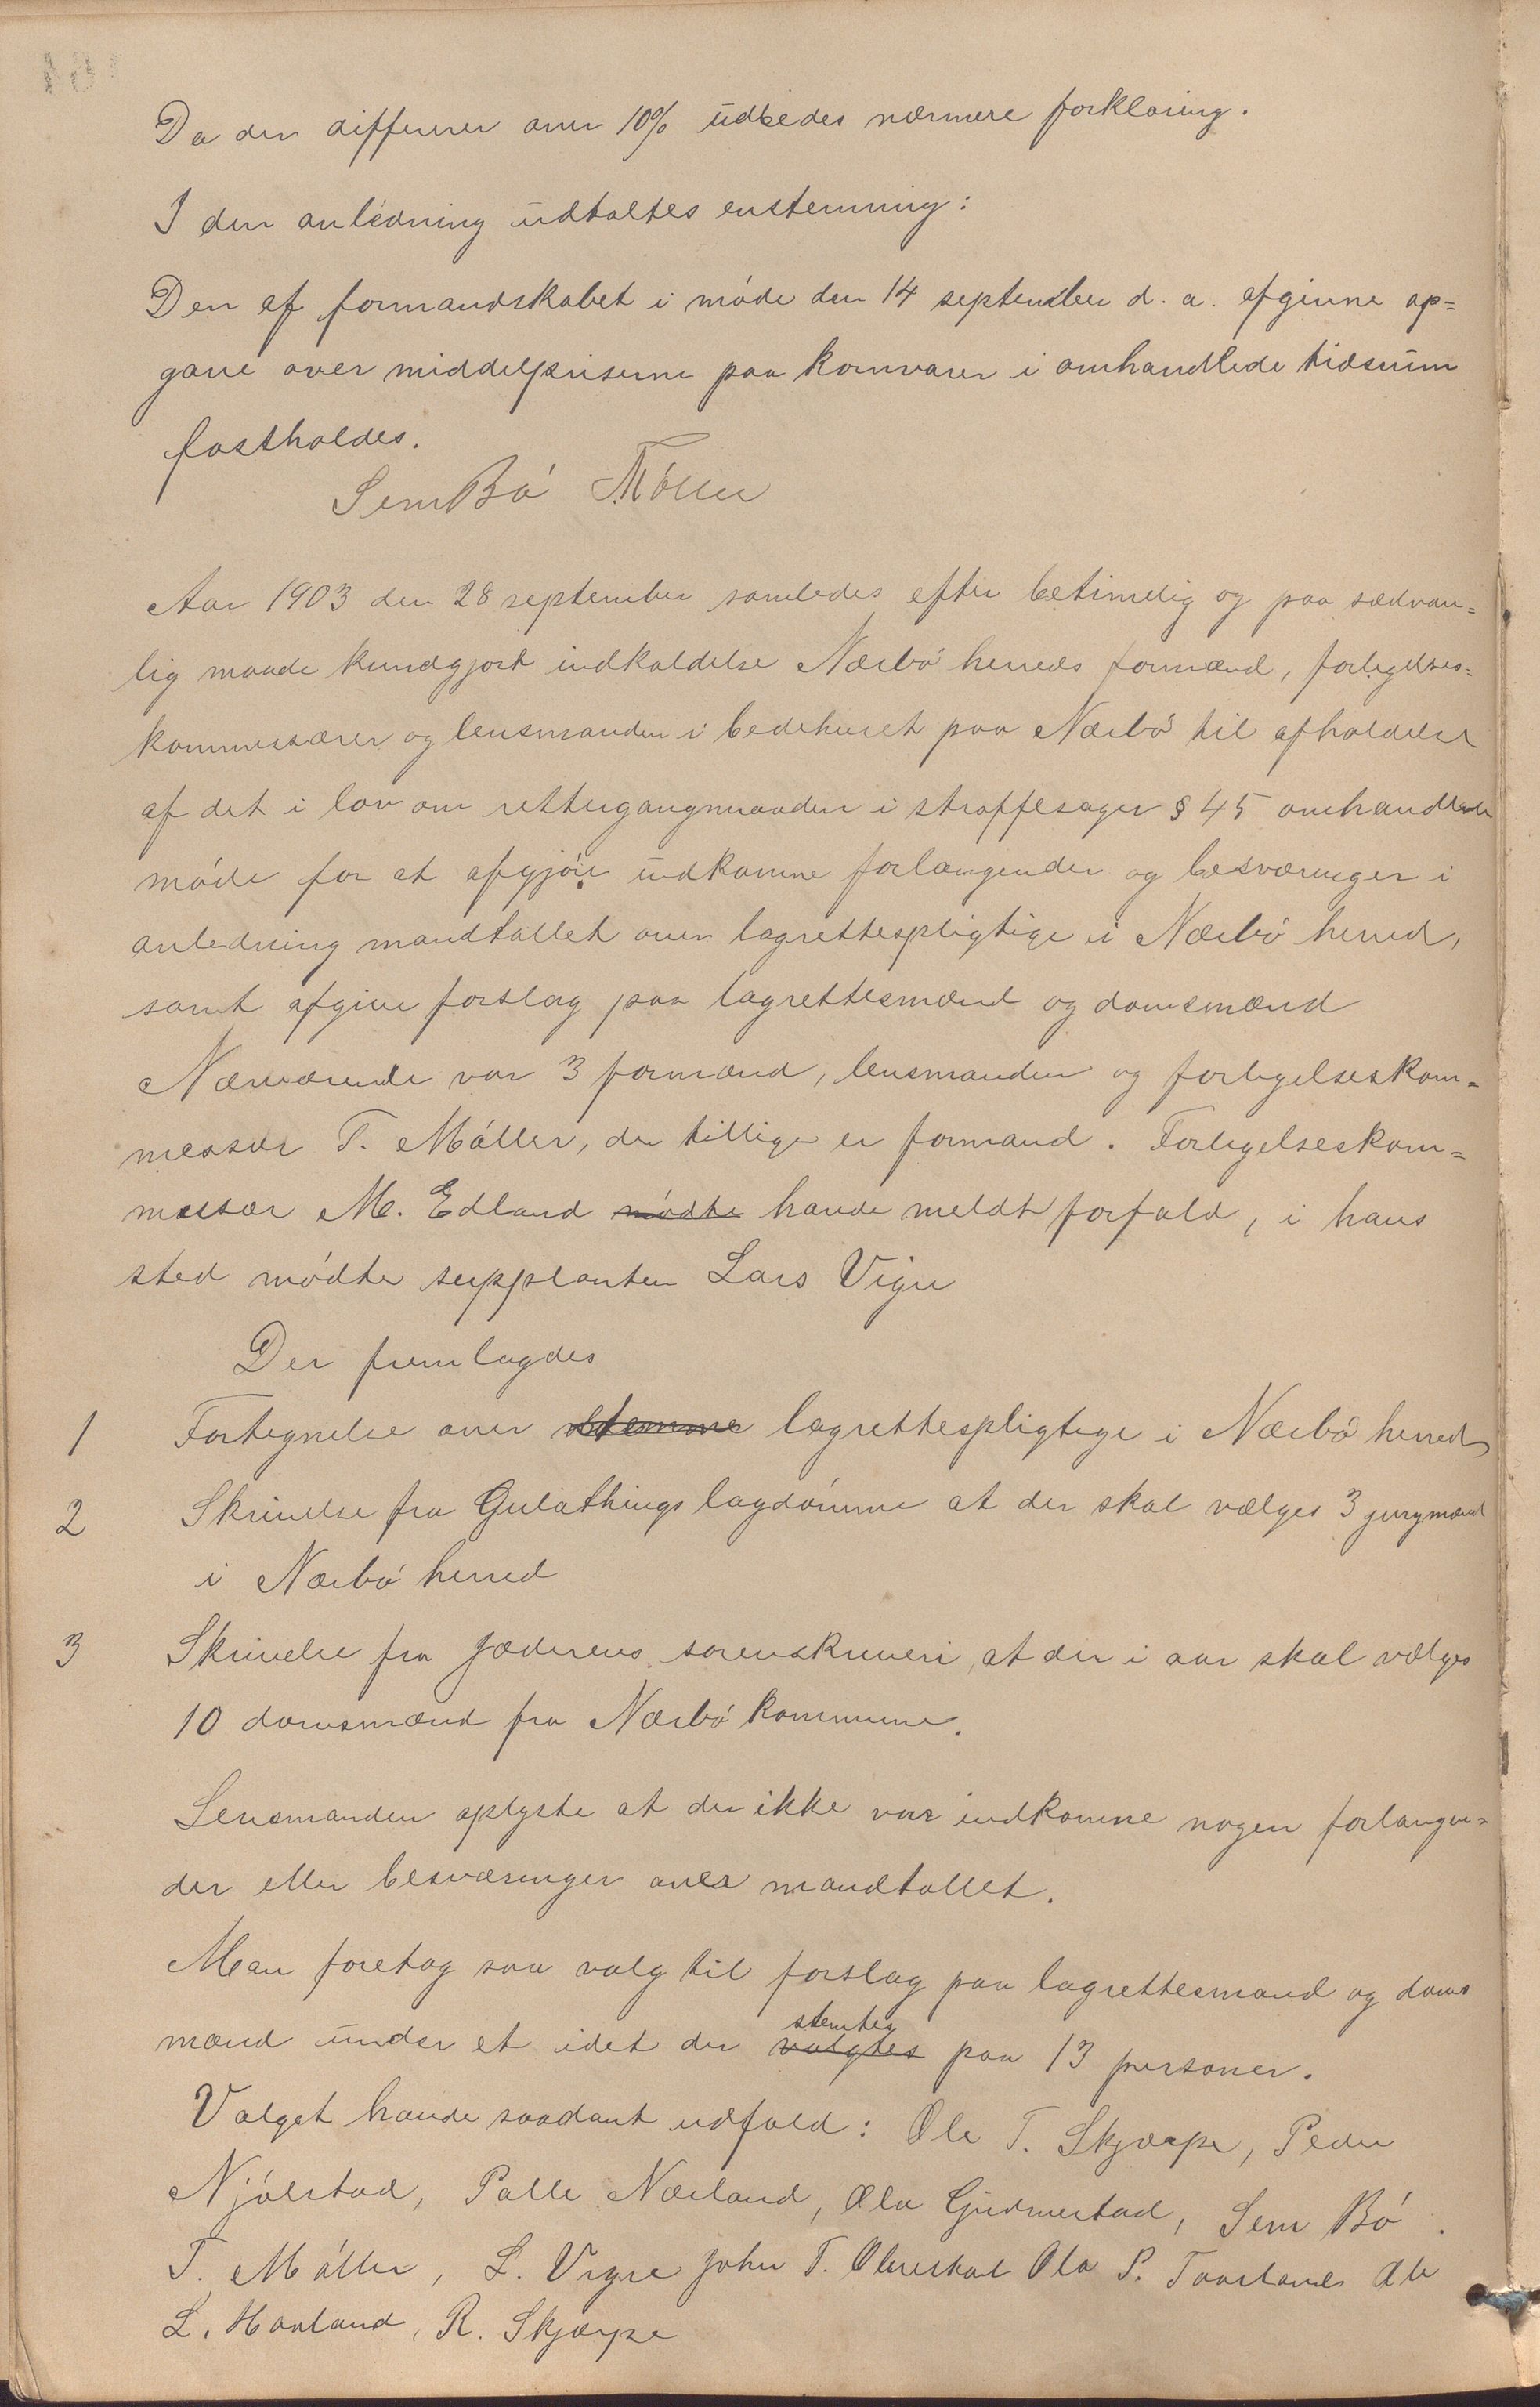 Da den differerer over 10% udbedes nærmere forklaring.
I den anledning udtaltes enstemmig:
Den af formandskabet i møde den 14 september d. a. afgivne op=
gave over middelpriserne paa kornvarer i omhandlede tidsrum
fastholdes.
Sem Bø T Møller
Aar 1903 den 28 september samledes efter betimelig og paa sædvan=
lig maade kundgjort indkaldelse Nærbø herreds formænd, forligelses=
kommissærer og lensmanden i bedehuset paa Nærbø til afholdelse
af det i lov om rettergangsmaaden i straffesager § 45 omhandlede
møde for at afgjøre indkomne forlangender og besværinger i
anledning mandtallet over lagrettespligtige i Nærbø herred,
samt afgive forslag paa lagrettesmænd og domsmænd
Nærværende var 3 formænd, lensmanden og forligelseskom=
messær T. Møller, der tillige er formand. Forligelseskom=
messær M. Edland mødte havde meldt forfald, i hans
sted mødte supplanten Lars Vigre
Der fremlagdes
1 Fortegnelse over stemme lagrettespligtige i Nærbø herred
2 Skrivelse fra Gulathings lagdømme at der skal vælges 3 jurymænd
i Nærbø herred
3 Skrivelse fra Jæderens sorenskriveri, at der i aar skal vælges
10 domsmænd fra Nærbø kommune.
Lensmanden oplyste at der ikke var indkomne nogen forlangen=
der eller besværinger over mandtallet.
Man foretog saa valg til forslag paa lagrettesmænd og doms
mænd under et idet der valgtes stemtes paa 13 personer.
Valget havde saadant udfald: Ole T. Skjærpe, Peder
Njølstad, Palle Nærland, Ola Gudmestad, Sem Bø.
T. Møller, L. Vigre John T. Obrestad Ola P. Taarland Ole
L. Haaland, R. Skjærpe